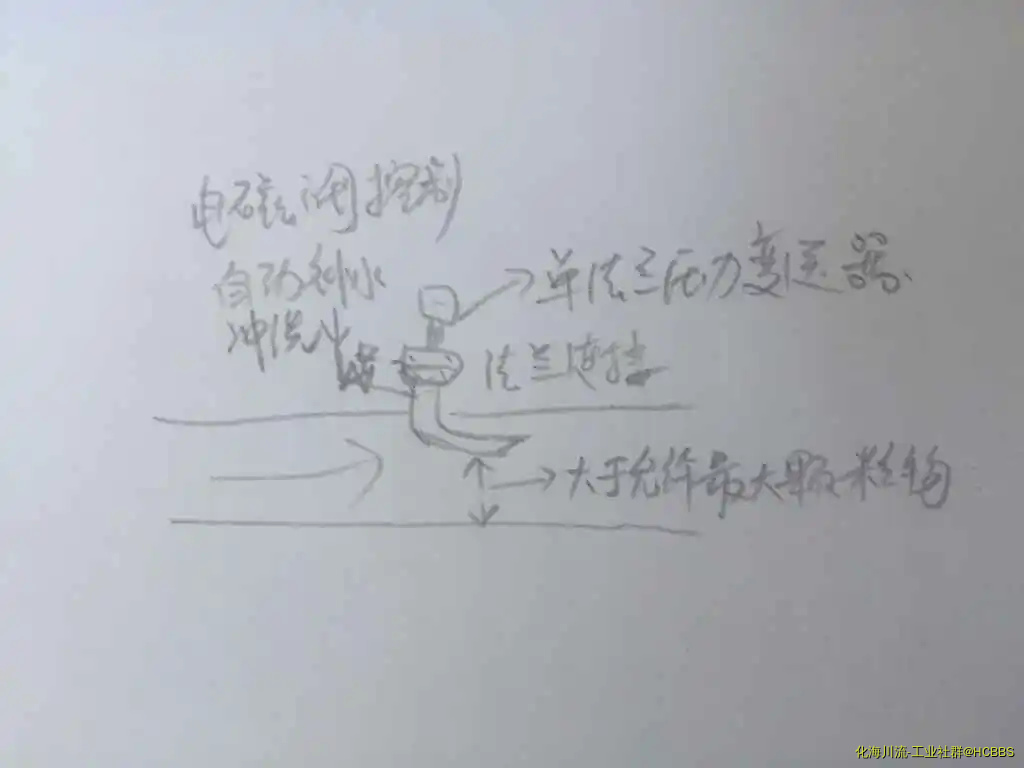 电磁阀控制
自动补水
冲洗水
单法兰压力变送器
法兰连接
大于允许最大颗粒物
化海川流-工业社群@HCBBS